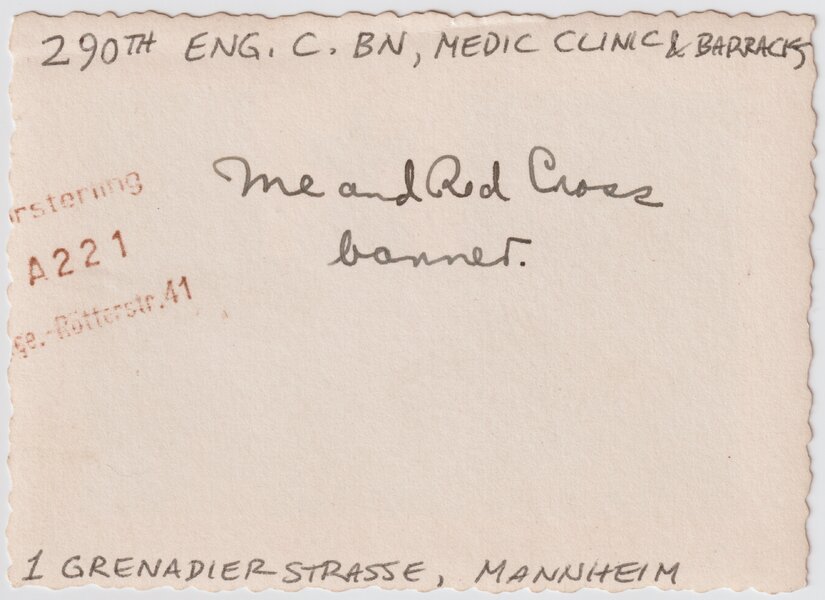 290TH ENG. C. BN, MEDIC CLINIC & BARRACKS
Me and Red Cross
banner.
rsterling
A221
ge.-Rötterstr.41
1 GRENADIERSTRASSE, MANNHEIM